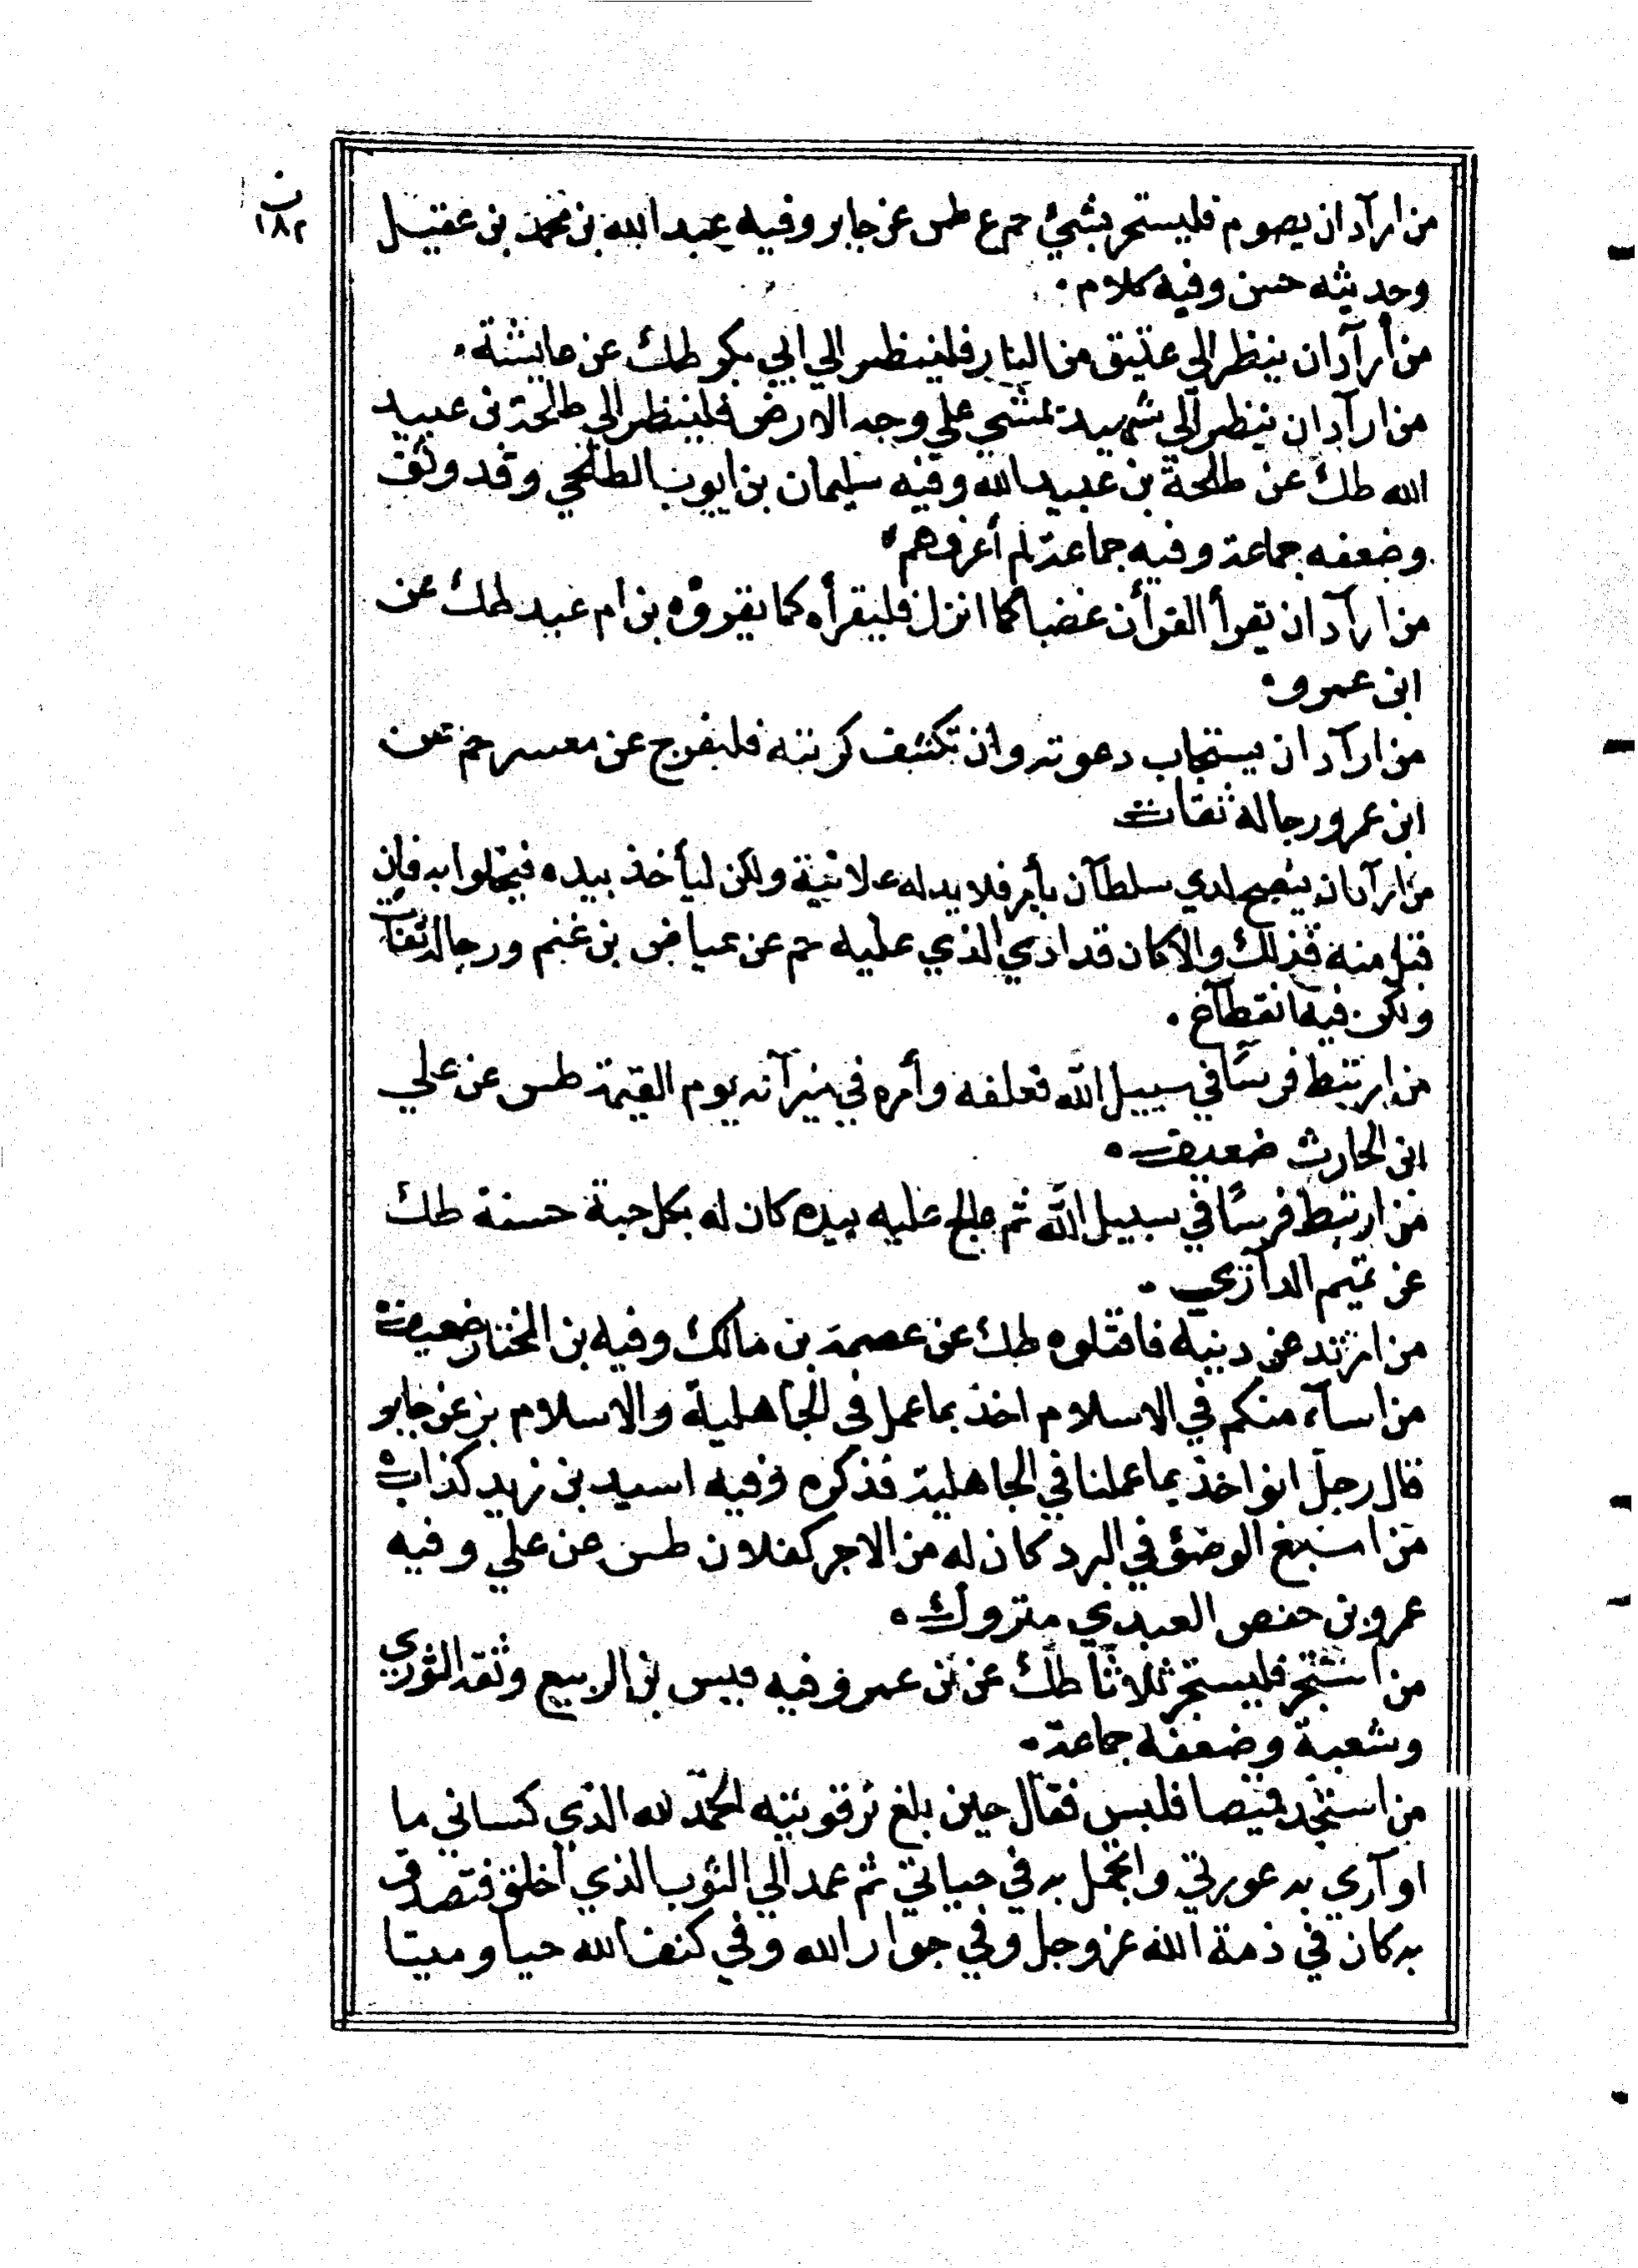 ن
١٨٢
من ارآد ان يصوم فليستحر بشئ حم ع طس عن جابر وفيه عبد الله بن محمد بن عقيل
وحديثه حسن وفيه كلام .
من أرآد ان ينظر الي عتيق من النار فلينظر الي ابي بكر طك عن عايشة .
من ارآد ان ينظر الي شهيد يمشي علي وجه الارض فلينظر الي طلحة بن عبيد
الله طك عن طلحة بن عبيد الله وفيه سليمان بن ايوب الطلحي وقد وثق
وضعفه جماعة وفيه جماعة لم أعرفهم
من ارآد ان يقرأ القرأن غضبا كما انزل فليقرأه كما يقروه بن ام عبد طك عن
ابن عمرو .
من ارآد ان يستجاب دعوته وان تكشف كربته فليفرج عن معسر حم عن
ابن عمر ورجاله ثقات
من ارآد ان ينصح لدي سلطآن بأمر فلا يبد له علانية ولكن ليأخذ بيده فيخلوا به فإن
قبل منه فذلك والا كان قد ادي الذي عليه حم عن عياض بن غنم ورجاله ثقات
ولكن فيه انقطآع .
من ارتبط فرسًا في سبيل الله فعلفه وأثره في ميزآنه يوم القيمة طس عن علي
ابن الحارث ضعيف .
من ارتبط فرسًا في سبيل الله ثم عالج عليه بيده كان له بكل حبة حسنة طك
عن تميم الدآري .
من ارتد عن دينه فاقتلوه طك عن عصمة بن مالك وفيه بن المختار ضعيف
من اسآء منكم في الاسلام اخذ بما عمل في الجاهلية والاسلام بز عن جابر
قال رجل انواخذ بما عملنا في الجاهلية فذكره وفيه اسيد بن زيد كذاب
من اسبغ الوضؤ في البرد كان له من الاجر كفلان طس عن علي وفيه
عمرو بن حفص العبدي متروك .
من استجمر فليستجمر ثلاثًا طك عن بن عمر وفيه قيس بن الربيع وثقه الثوري
وشعبة وضعفه جماعة .
من استجد قميصا فلبس فقال حين بلغ ترقوتيه الحمد لله الذي كساني ما
اوآري به عورتي واتجمل به في حياتي ثم عمد الي الثوب الذي أخلق فتصدق
به كان في ذمة الله عز وجل وفي جوار الله وفي كنف الله حيا وميتا